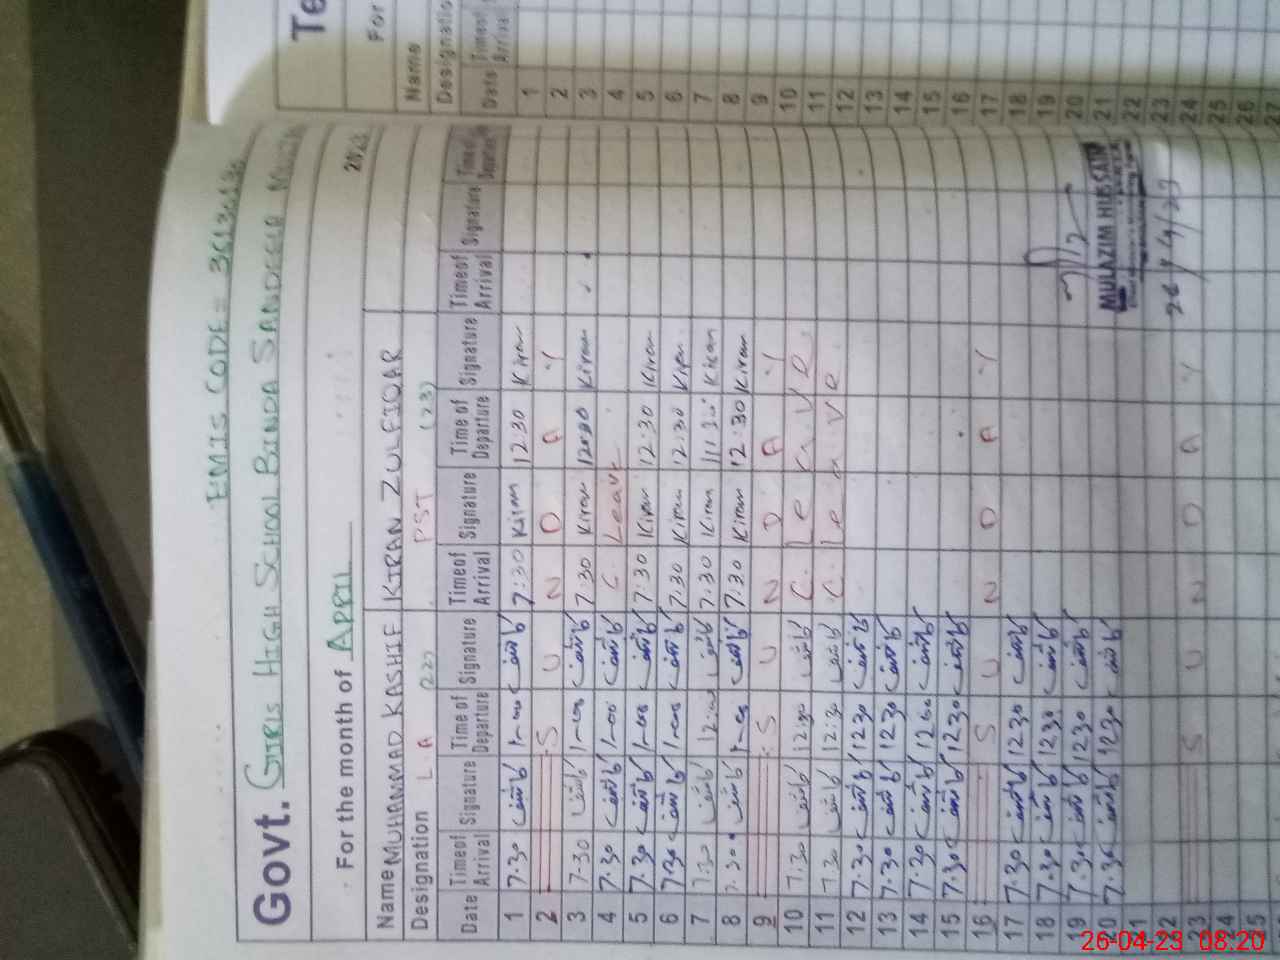 EMIS CODE = 
Govt. GIRLS HIGH SCHOOL BINDA SANDEELA
For the month of APRIL
Name MUHAMMAD KASHIF KIRAN ZULFIQAR
Designation L.A (22) PST (23)
Date Time of Arrival Signature Time of Departure Signature Time of Arrival Signature Time of Departure Signature Time of Arrival Signature Time of Departure
1 7.30 کاشف 1-00 کاشف 7:30 Kiran 12.30 Kiran
2 S U N D A Y
3 7.30 کاشف 1-00 کاشف 7.30 Kiran 12:30 Kiran
4 7.30 کاشف 1-00 کاشف C. Leave
5 7.30 کاشف 1-00 کاشف 7.30 Kiran 12:30 Kiran
6 7.30 کاشف 1-00 کاشف 7.30 Kiran 12.30 Kiran
7 7.30 کاشف 12:00 کاشف 7.30 Kiran 11.30 Kiran
8 7.30 کاشف 1-00 کاشف 7.30 Kiran 12:30 Kiran
9 S U N D A Y
10 7.30 کاشف 12:30 کاشف C. Leave
11 7.30 کاشف 12:30 کاشف C. Leave
12 7.30 کاشف 12 30 کاشف
13 7.30 کاشف 12 30 کاشف
14 7.30 کاشف 12 00 کاشف
15 7.30 کاشف 12 30 کاشف
16 S U N D A Y
17 7.30 کاشف 12 30 کاشف
18 7.30 کاشف 12 30 کاشف
19 7.30 کاشف 12 30 کاشف
20 7.30 کاشف 12 30 کاشف
MULAZIM HUSSAIN
21
22
26/4/23
23 S U N D A Y
24
25
Te
For
Name
Designatio
Date Time of Arrival
1
2
3
4
5
6
7
8
9
10
11
12
13
14
15
16
17
18
19
20
21
22
23
24
25
26
27
26-04-23 08:20